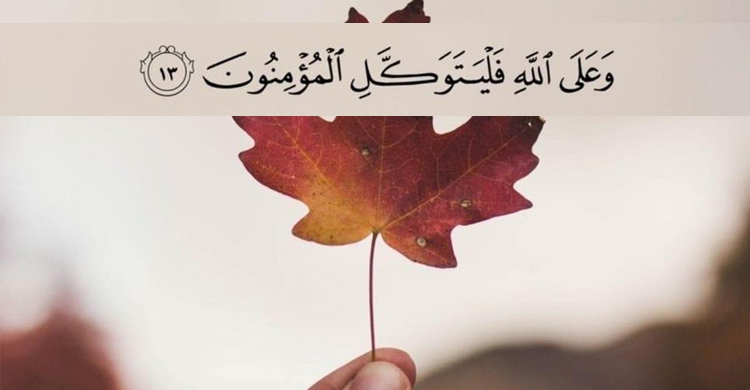 وَعَلَى ٱللَّهِ فَلْيَتَوَكَّلِ ٱلْمُؤْمِنُونَ ١٣